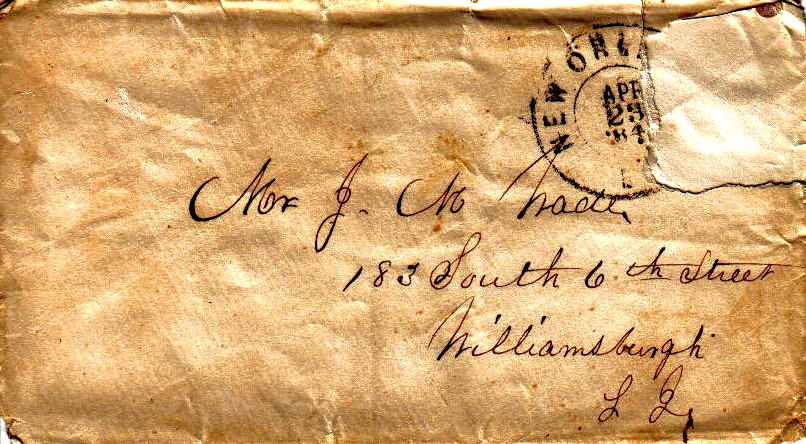 NEW ORLE
APR
23
'84
Mr J. M Wade,
183 South 6th Street
Williamsburgh
L I,